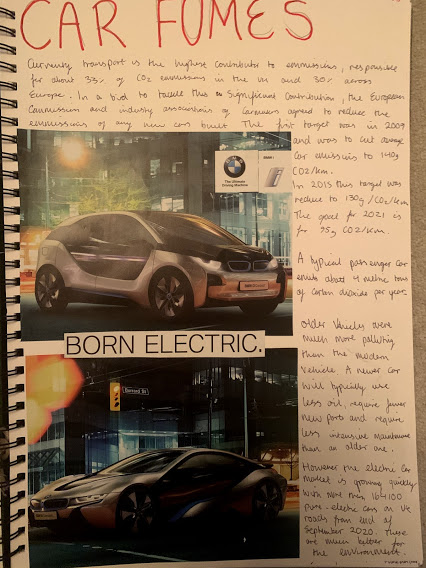 CAR FUMES
Currently transport is the highest contributor to emmissions, responsible
for about 33% of CO2 emmissions in the UK and 30% across
Europe. In a bid to tackle this significant contribution, the European
Commission and industry associations of Carmakers agreed to reduce the
emmissions of any new cars built. The first target was in 2009
and was to cut average
car emissions to 140g
CO2/km.
In 2015 this target was
reduce to 130g/CO2/km
The goal for 2021 is
for 95g CO2/km.
The Ultimate
Driving Machine
BMW i
A typical passenger car
emits about 4 metric tons
of carbon dioxide per year.
BORN ELECTRIC.
Older Vehicles were
much more polluting
than the modern
vehicle. A newer car
will typically use
less oil, require fewer
new parts and require
less intensive maintenance
than an older one.
However the electric car
market is growing quickly
with more than 164,100
pure-electric cars on UK
roads from end of
September 2020. These
are much better for
the environment.
Barnard St